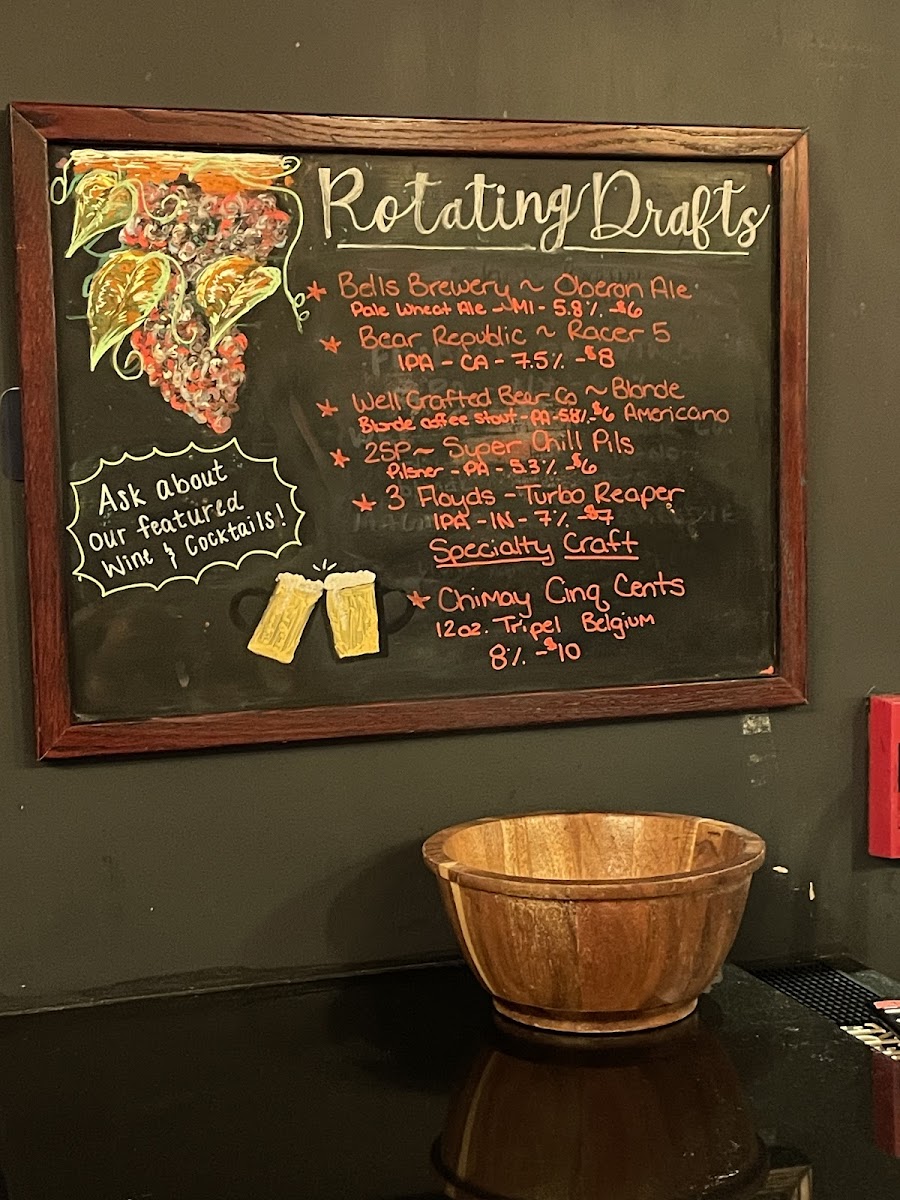 Rotating Drafts
★ Bells Brewery ~ Oberon Ale
Pale Wheat Ale - MI - 5.8% - $6
★ Bear Republic ~ Racer 5
IPA - CA - 7.5% - $8
★ Well Crafted Beer Co ~ Blonde
Blonde coffee stout - PA - % - $6 Americano
★ 2SP ~ Super Chill Pils
Pilsner - PA - 5.3% - $6
★ 3 Floyds - Turbo Reaper
IPA - IN - 7% - $7
Specialty Craft
★ Chimay Cinq Cents
12oz. Tripel Belgium
8% - $10
Ask about
our featured
Wine & Cocktails!